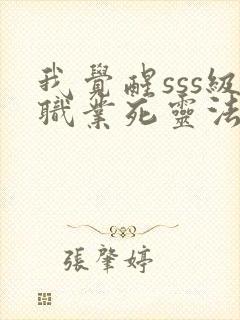 我覺醒sss級
職業死靈法
張肇婷